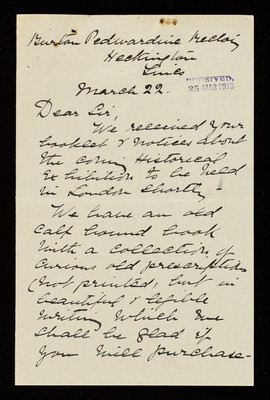 Burton Pedwardine Rectory
Heckington
Lincs
RECEIVED,
25 MAR 1913
March 22.
Dear Sir,
We received your
booklet & notices about
the coming Historical
Exhibition to be held
in London shortly
We have an old
calf bound book
with a collection of
curious old prescriptions
(not printed, but in
beautiful & legible
writing which we
shall be glad if
you will purchase-